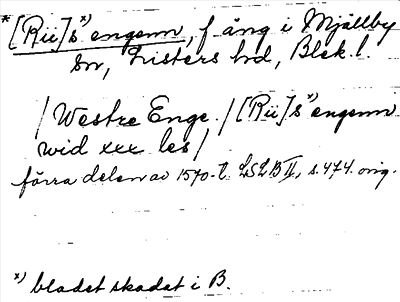 *[Rii]s*) engenn, f äng i Mjällby
sn, Listers hd, Blek. l.
/ Westre Enge / [Rii]s*) engenn
wid xxx les /
förra delen av 1570-t. LSLB II, s. 474. orig.
*) bladet skadat i B.